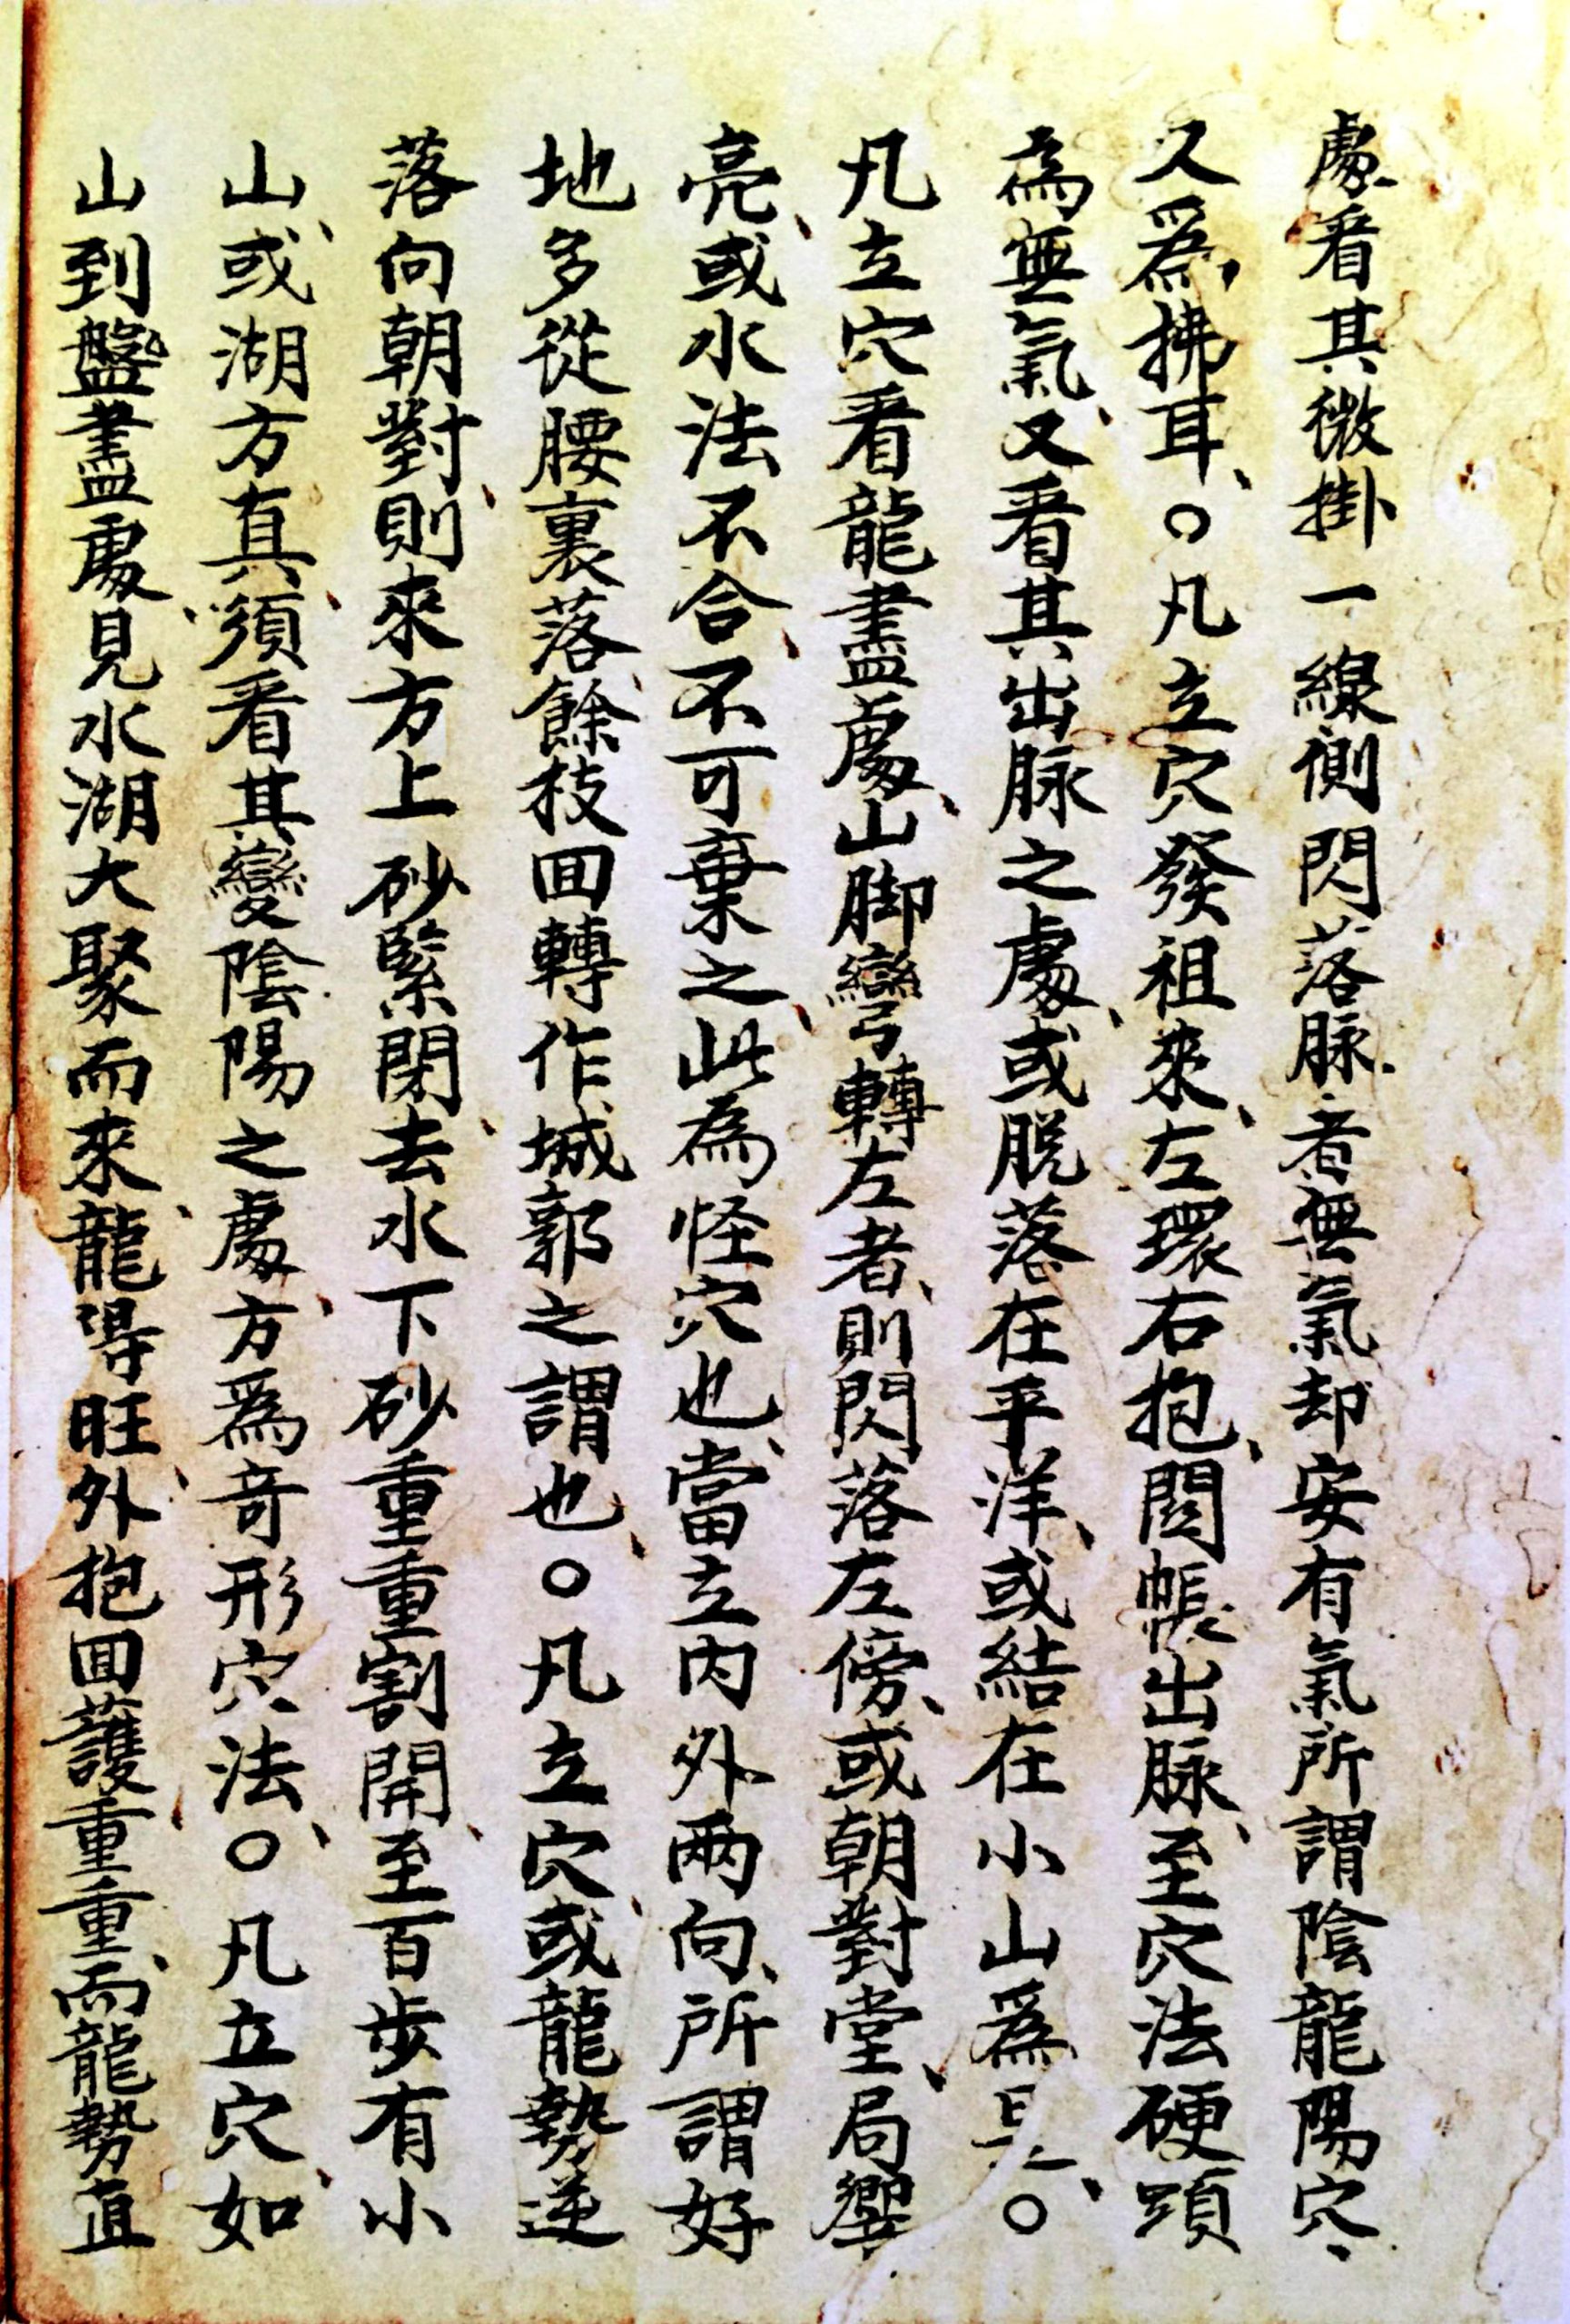 處看其微掛一線側閃落脉者無氣却安有氣所謂陰龍陽穴
又爲拂耳○凡立穴發祖來左環右抱開帳出脉至穴法硬頭
為無氣又看其出脉之處或脱落在平洋或結在小山爲是○
凡立穴看龍盡處山脚彎轉左者則閃落左傍或朝對堂局響
亮或水法不合不可棄之此為怪穴也當立内外两向所謂好
地多從腰裏落餘枝回轉作城郭之謂也○凡立穴或龍勢逆
落向朝對則來方上砂緊閉去水下砂重重割開至百步有小
山或湖方真須看其變陰陽之處方爲奇形穴法○凡立穴如
山到盤盡處見水湖大聚而來龍得旺外抱回護重重而龍勢直